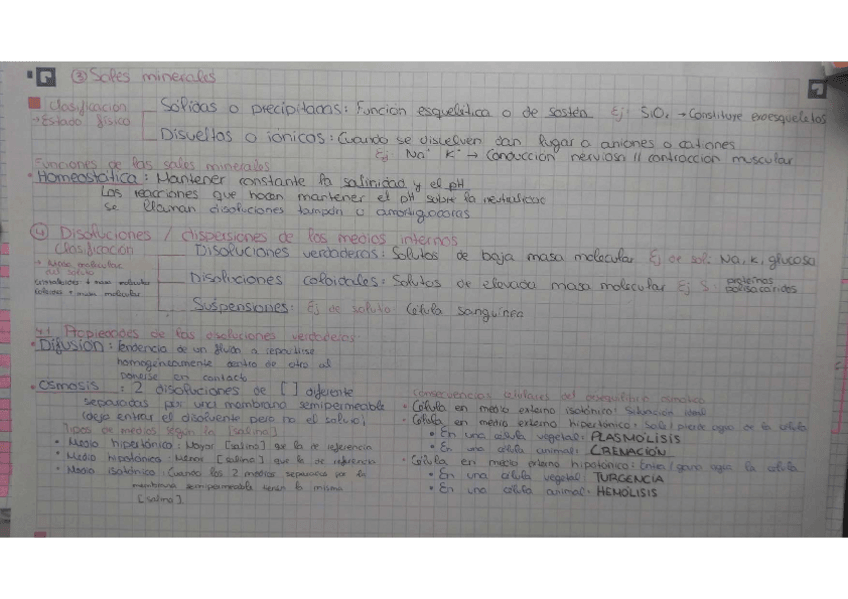 ③ Sales minerales
Clasificación
→ Estado físico
Sólidas o precipitadas: Función esquelética o de sostén. Ej: SiO, → Constituye exoesqueletos
Disueltas o iónicas: Cuando se disuelven dan lugar a aniones o cationes
Ej Na⁺ K⁺ → Conducción nerviosa // contracción muscular
Funciones de las sales minerales
• Homeostática: Mantener constante la salinidad y el pH
Las reacciones que hacen mantener el pH sobre la neutralidad
se llaman disoluciones tampón o amortiguadoras
④ Disoluciones / dispersiones de los medios internos
Clasificación
→ Masa molecular
del soluto
Disoluciones verdaderas: Solutos de baja masa molecular Ej de sol: Na, K, glucosa
Disoluciones coloidales: Solutos de elevada masa molecular Ej S: proteínas
polisacáridos
Suspensiones: Ej de soluto: Célula sanguínea
4.1 Propiedades de las disoluciones verdaderas
• Difusión: tendencia de un fluido a repartirse
homogéneamente dentro de otro al
ponerse en contacto
• Osmosis: 2 disoluciones de [ ] diferente
separadas por una membrana semipermeable
(deja entrar el disolvente pero no el soluto)
Tipos de medios según la [salina]
• Medio hipertónico: Mayor [salina] que la de referencia
• Medio hipotónico: Menor [salina] que la de referencia
• Medio isotónico: Cuando los 2 medios separados por la
membrana semipermeable tienen la misma
[salina]
Consecuencias celulares del desequilibrio osmótico
• Célula en medio externo isotónico: Situación ideal
• Célula en medio externo hipertónico: Sale/pierde agua de la célula
• En una célula vegetal: PLASMOLISIS
• En una célula animal: CRENACIÓN
• Célula en medio externo hipotónico: Entra/gana agua la célula
• En una célula vegetal: TURGENCIA
• En una célula animal: HEMOLISIS